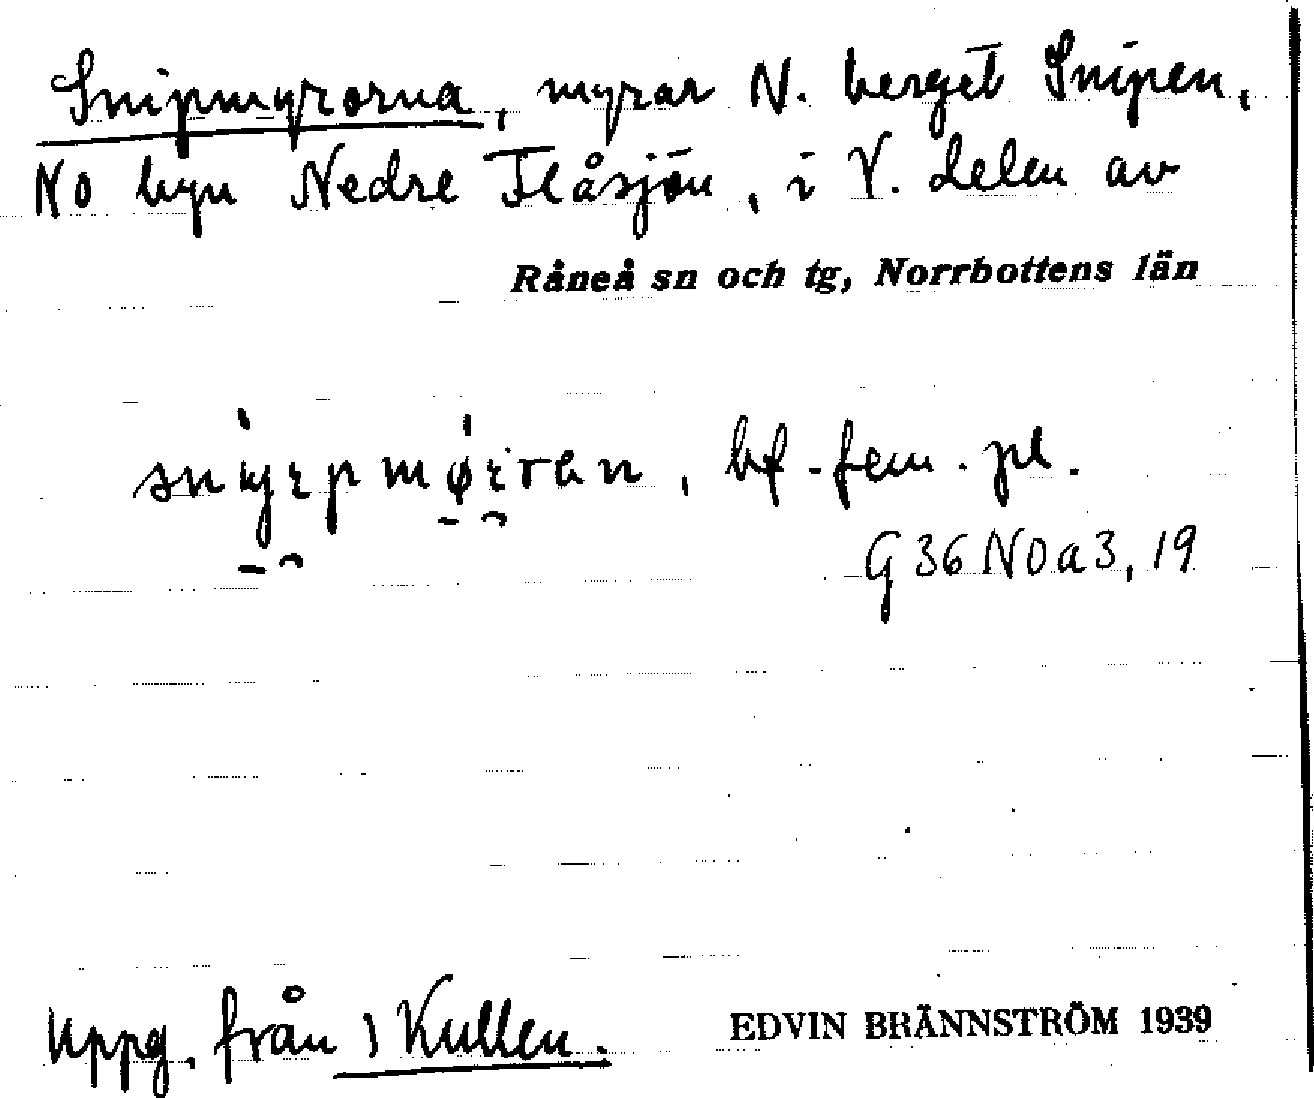 Snipmyrorna, myrar N. berget Snipen,
NO byn Nedre Flåsjön, i V. delen av
Råneå sn och tg, Norrbottens län
bf. fem. pl.
G 36 NO a 3, 19
Uppg. från 1 Kullen.
EDVIN BRÄNNSTRÖM 1939